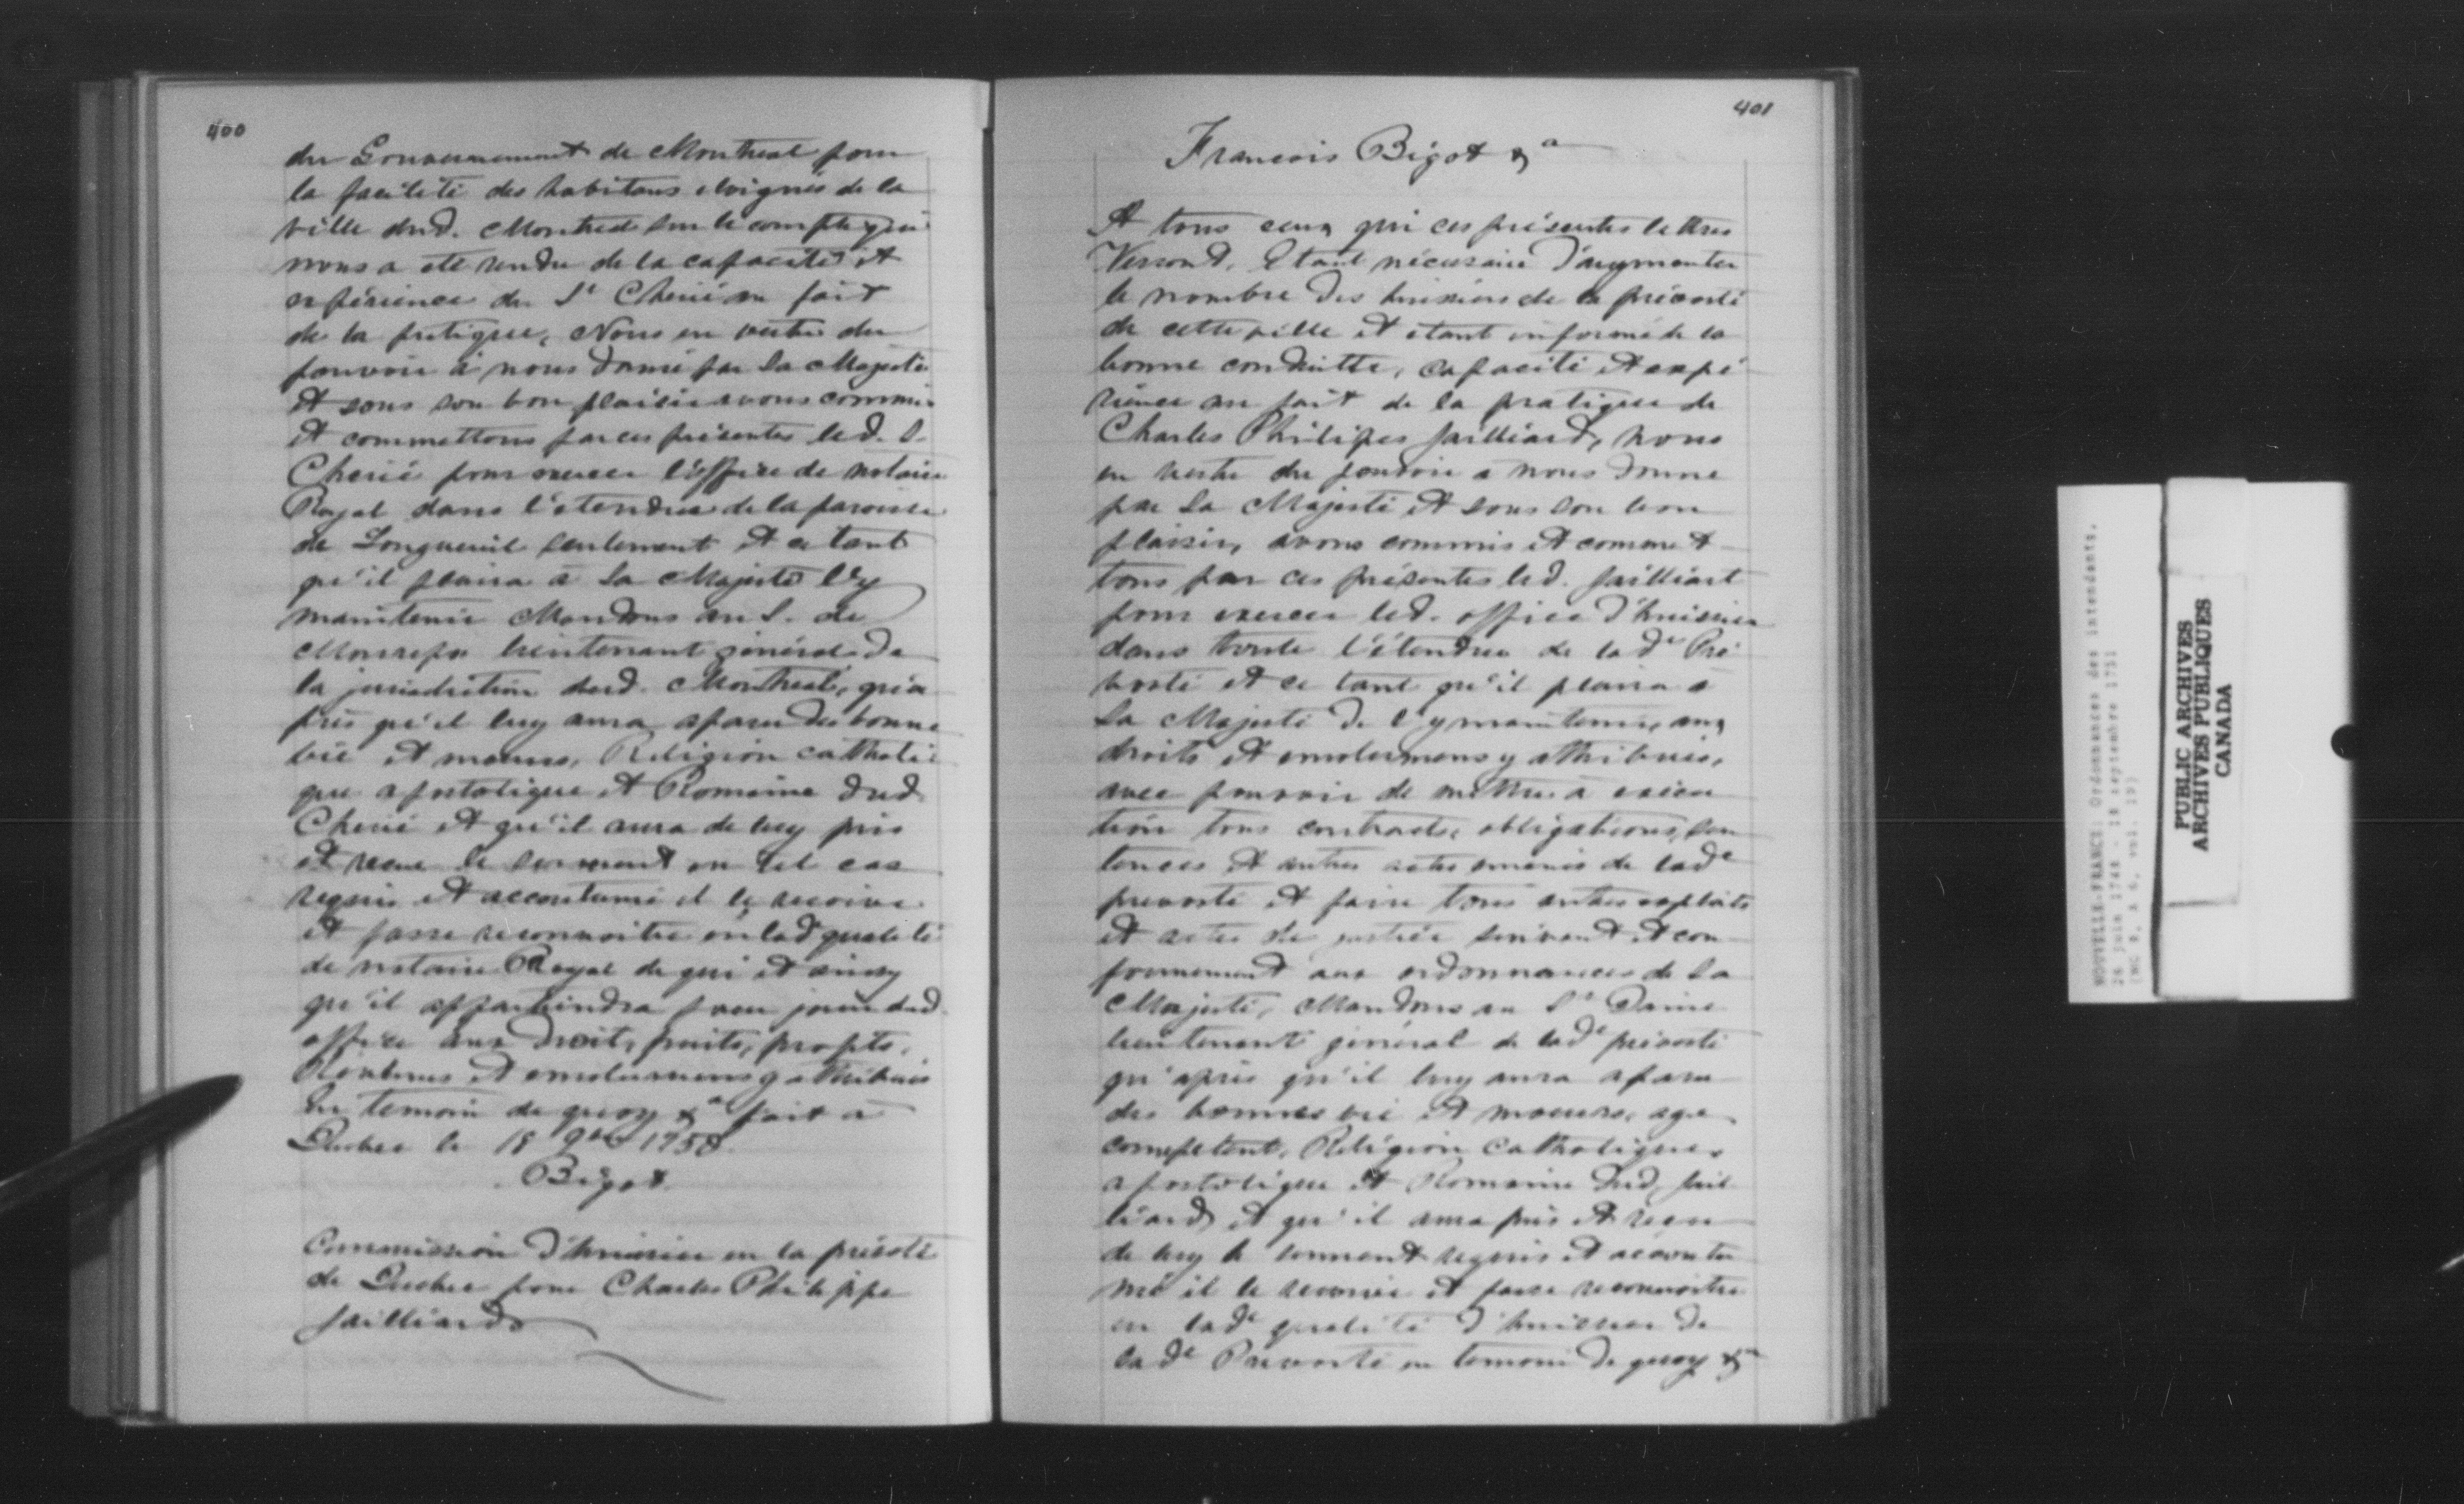 400
du Gouvernement de Montreal pour
la facilité des habitans eloignés de la
ville dud. Montreal sur le compte qui
nous a ete rendu de la capacité et
experience du Sr Cherié au fait
de la pratique, Nous en vertu du
pouvoir à nous donné par Sa Majesté
et sous son bon plaisir avons commis
et commettons par ces présentes led. S.
Cherié pour exercer l'office de notaire
Royal dans l'etendue de la paroisse
de Longueuil seulement et ce tant
qu'il plaira à Sa Majesté l'y
maintenir Mandons au S. de
Monrepos lieutenant général de
la jurisdiction dud. Montreal, qu'a
prés qu'il luy aura aparu des bonne
vie et moeurs, Religion catholi-
que apostolique et Romaine dud
Cherié et qu'il aura de luy pris
et receu le serment en tel cas
requis et accoutumé il le recoive
et fasse reconnoitre en lad qualité
de notaire Royal de qui et ainsy
qu'il appartiendra pour jouir dud.
office aux droits, fruits, profits,
Revenus et emolumens y attribués
En temoin de quoy &a fait a
Quebec le 18 9bre 1750.
Bigot
Commission d'huissier en la prévoté
de Quebec pour Charles Philippe
Jailliard
401
Francois Bigot &a
A tous ceux qui ces présentes lettres
Verront, Etant nécessaire d'augmenter
le nombre des huissiers de la prévosté
de cette ville et etant informé de la
bonne conduitte, capacité et expé
rience au fait de la pratique de
Charles Philipes Jailliard, nous
en vertu du pouvoir a nous donné
par Sa Majesté et sous son bon
plaisir, avons commis et commet
tons par ces présentes led. Jailliart
pour exercer led. office d'huissier
dans toute l'étendue de lade Pré
vosté et ce tant qu'il plaira a
Sa Majesté de l'y maintenir, aux
droits et emolumens y attribués,
avec pouvoir de mettre à execu
tion tous contracts, obligations, sen
tences et autres actes emanés de lade
prevosté et faire tous autres exploits
et actes de justice suivant et con
formement aux ordonnances de Sa
Majesté, Mandons au Sr Daine
lieutenant général de lade prévosté
qu'après qu'il luy aura aparu
des bonnes vie et moeurs, age
competent, Religion Catholique
apostolique et Romaine dud, Jail
liard, et qu'il aura pris et receu
de luy le serment requis et accoutu
mé il le recoive et fasse reconnoitre
en lade qualité d'huissier de
lade Prevosté en temoin de quoy &a
NOUVELLE-FRANCE: Ordonnances des intendants.
26 juin 1748 - 16 septembre 1751
(MG 8, A 6, vol. 19)
PUBLIC ARCHIVES
ARCHIVES PUBLIQUES
CANADA